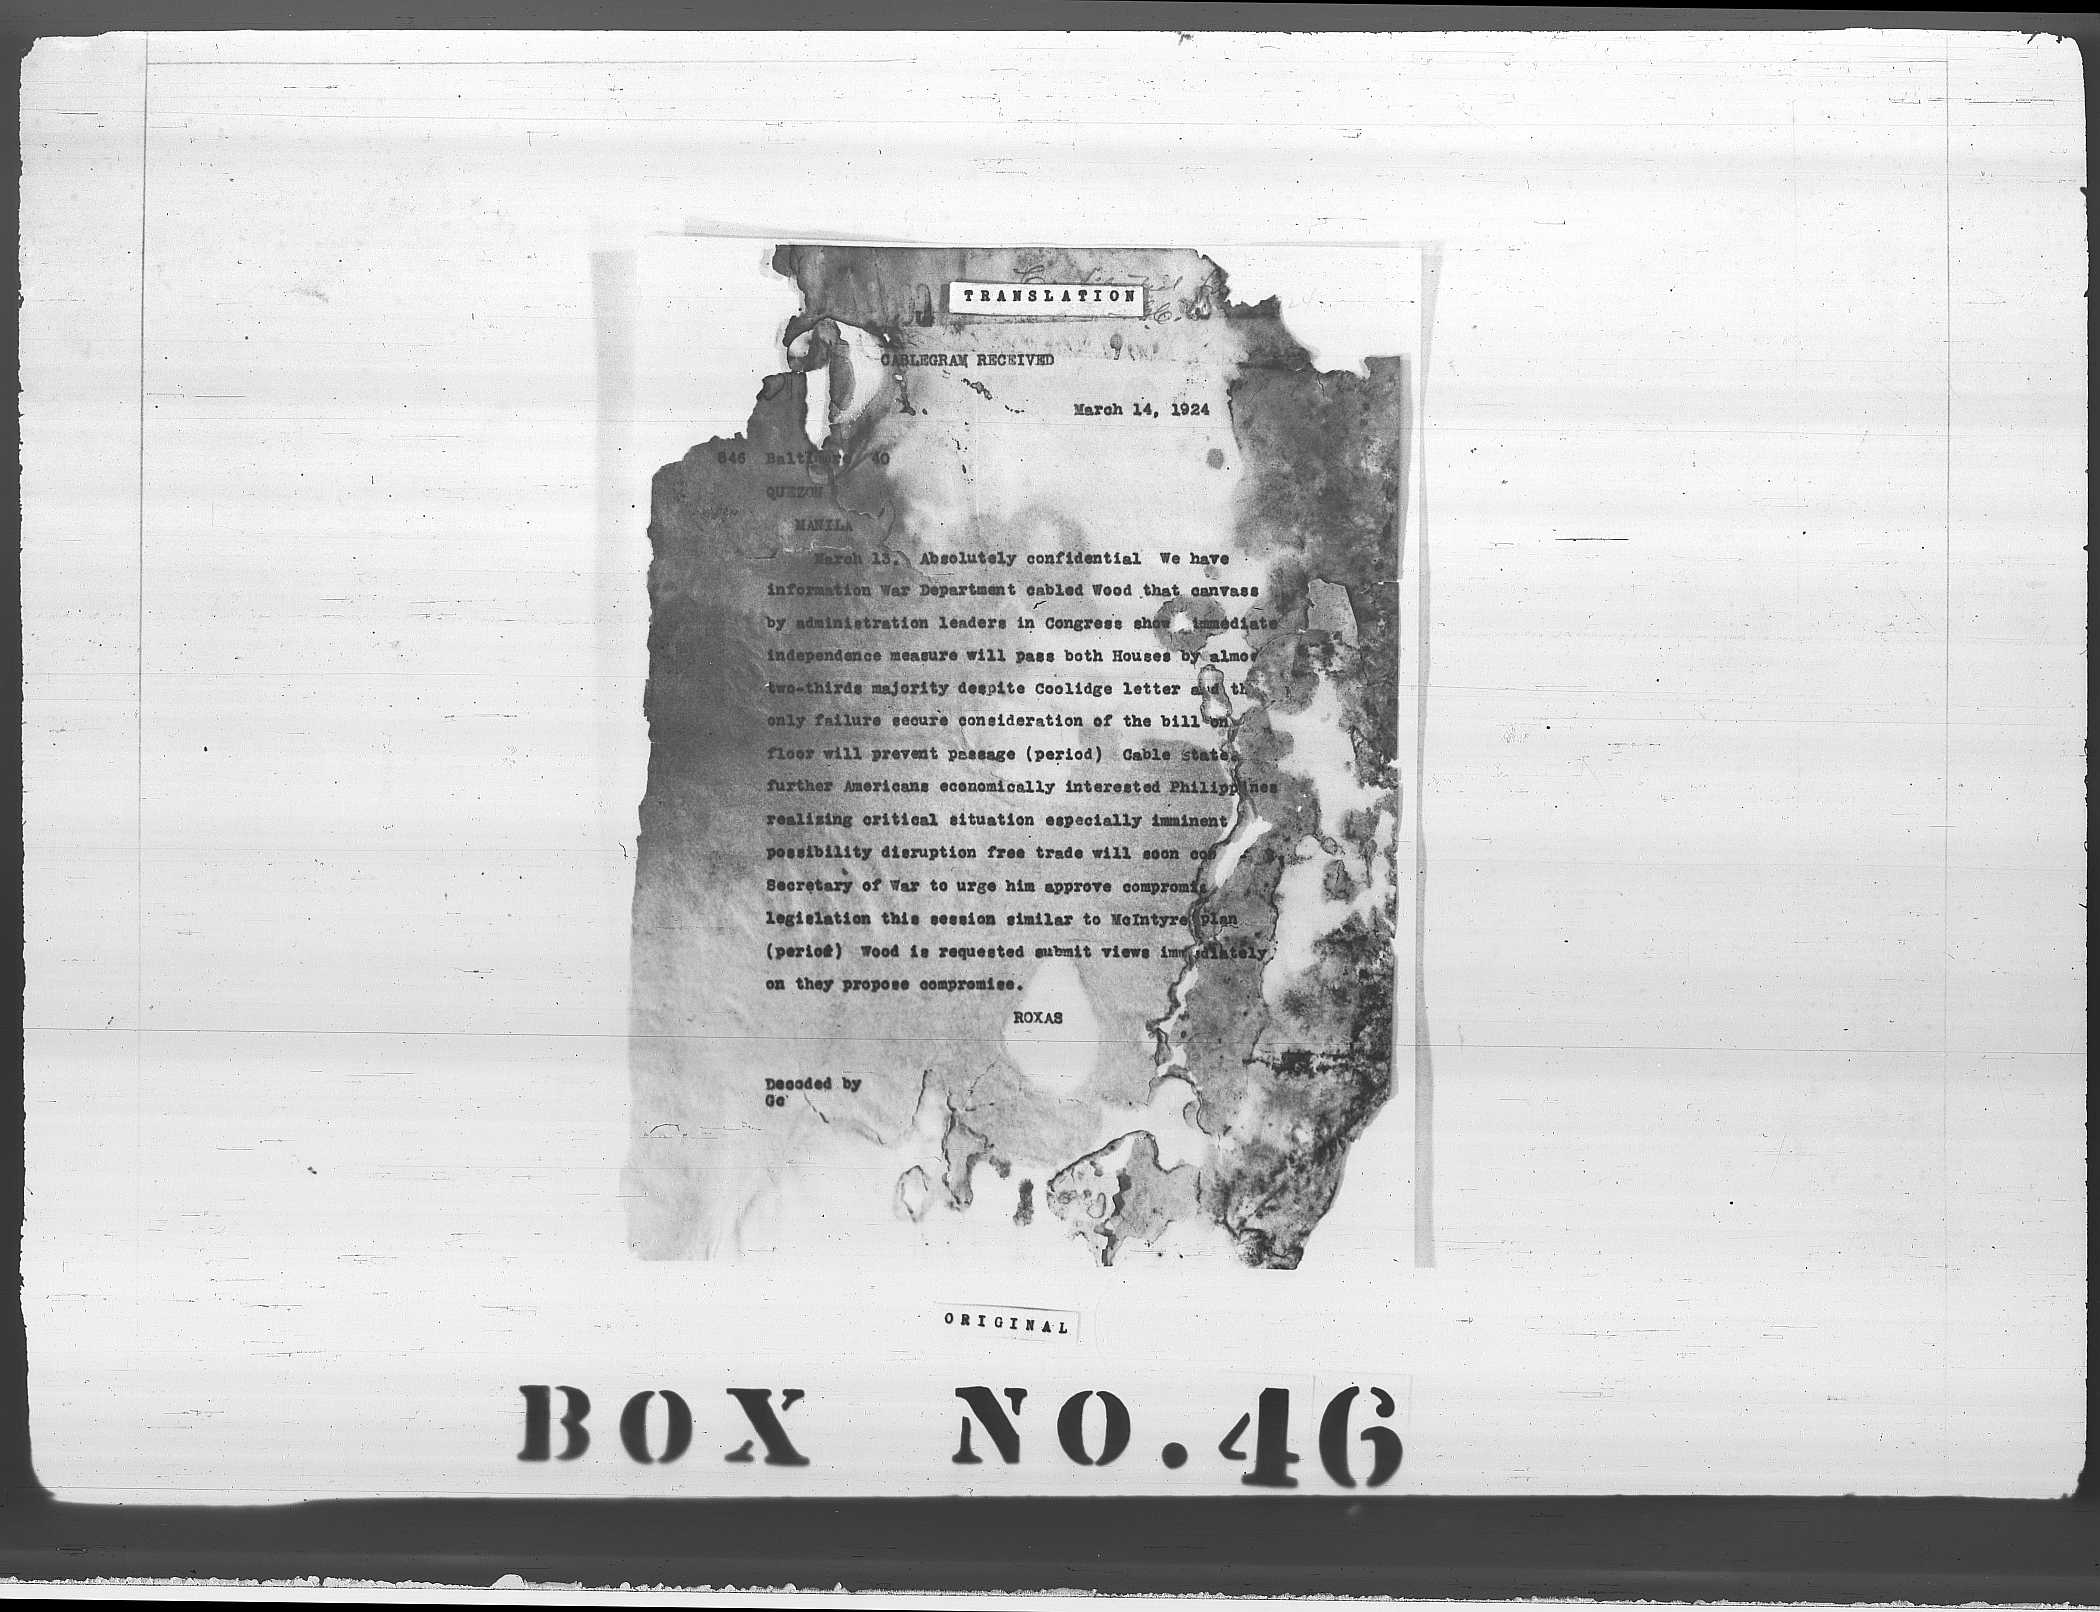 TRANSLATION
CABLEGRAM RECEIVED
March 14, 1924
846 Baltimore 40
QUEZON
MANILA
March 13. Absolutely confidential We have
information War Department cabled Wood that canvass
by administration leaders in Congress show immediate
independence measure will pass both Houses by almos
two-thirds majority despite Coolidge letter and th
only failure secure consideration of the bill on
floor will prevent passage (period) Cable states
further Americans economically interested Philippines
realizing critical situation especially imminent
possibility disruption free trade will soon
Secretary of War to urge him approve compromis
legislation this session similar to McIntyre plan
(period) Wood is requested submit views immediately
on they propose compromise.
ROXAS
Decoded by
Gc
ORIGINAL
BOX NO. 46